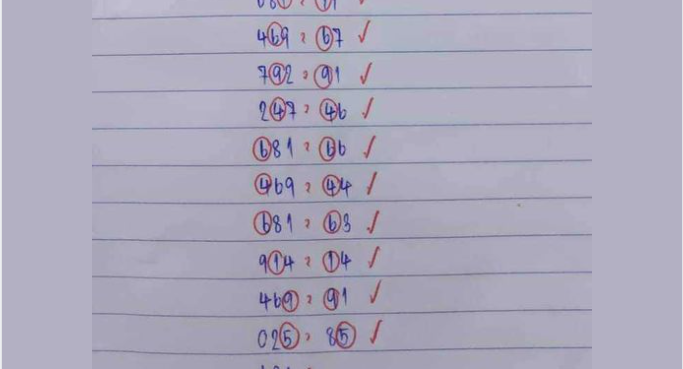 469 = 67 ✓
792 = 91 ✓
247 = 46 ✓
681 = 66 ✓
469 = 44 ✓
681 = 63 ✓
914 = 14 ✓
469 = 91 ✓
025 = 85 ✓